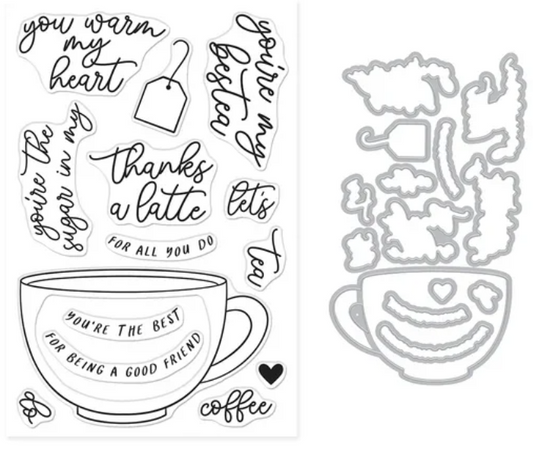 you warm
my
heart
you're my
bestea
you're the
sugar in my
thanks
a latte
let's
FOR ALL YOU DO
tea
YOU'RE THE BEST
FOR BEING A GOOD FRIEND
do
coffee